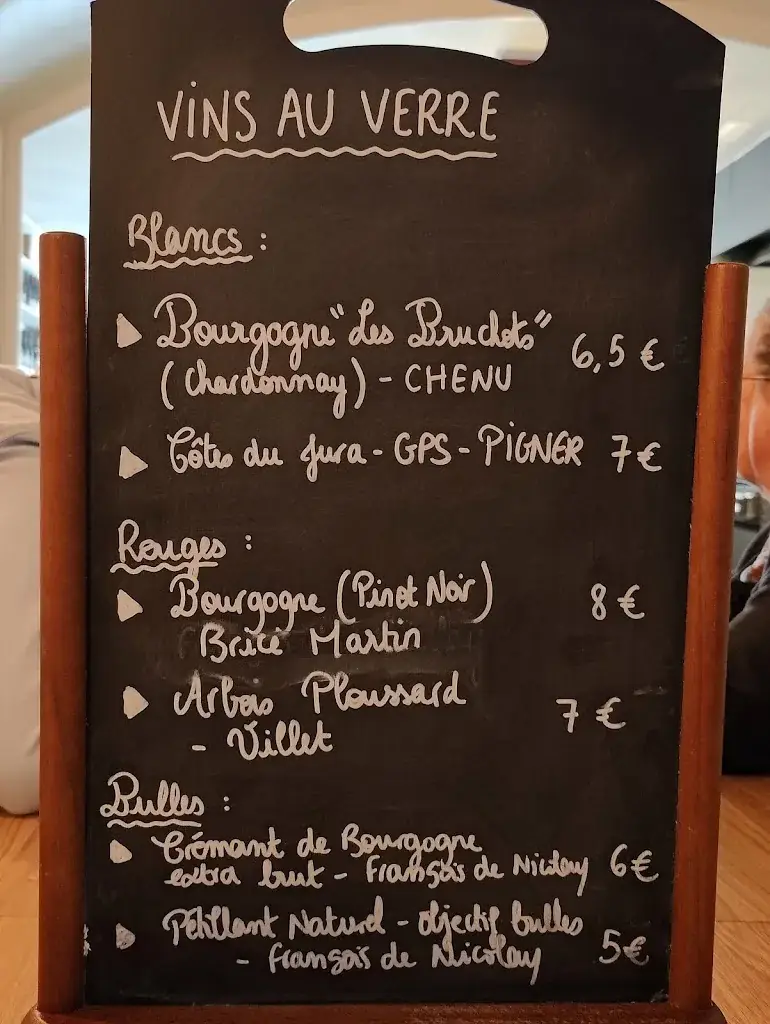 VINS AU VERRE
Blancs :
Bourgogne "Les Bruchots" 6,5 €
(Chardonnay) - CHENU
Côtes du Jura - GPS - PIGNER 7€
Rouges :
Bourgogne (Pinot Noir) 8 €
Brice Martin
Arbois Ploussard 7 €
- Villet
Bulles :
Crémant de Bourgogne
extra brut - François de Nicolay 6€
Pétillant Naturel - objectif bulles
- François de Nicolay 5€